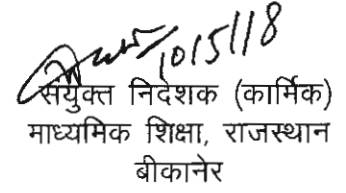 10/5/18
संयुक्त निदेशक (कार्मिक)
माध्यमिक शिक्षा, राजस्थान
बीकानेर